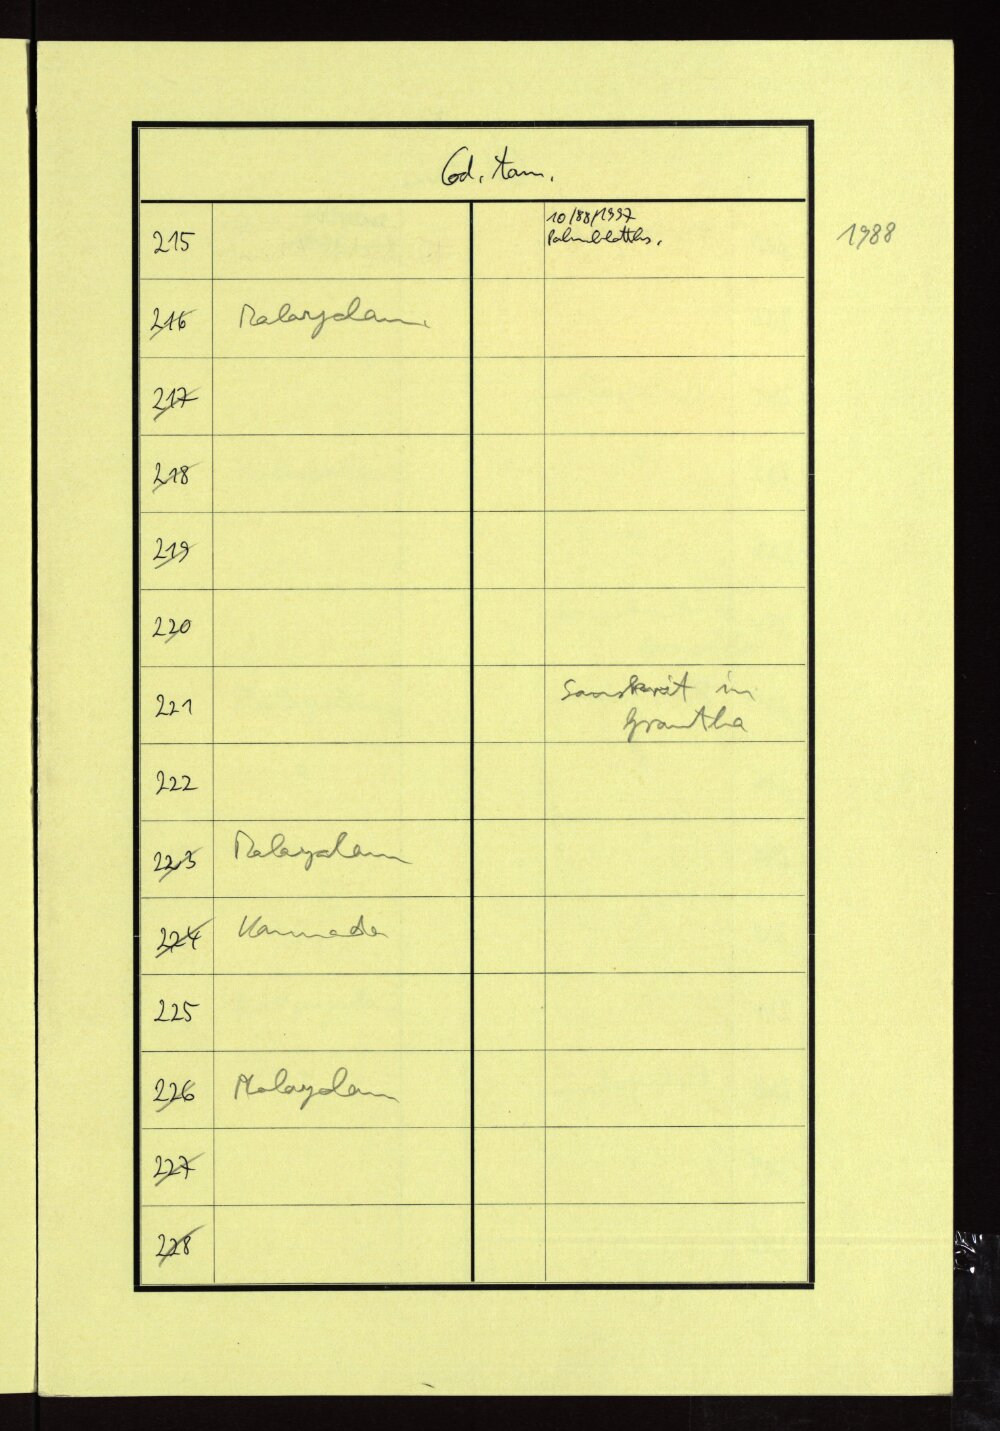 Cod. tam.
215 10/88/1997 1988
Palmblatthss.
216 Malayalam
217
218
219
220
221 Sanskrit in
Grantha
222
223 Malayalam
224 Kannada
225
226 Malayalam
227
228